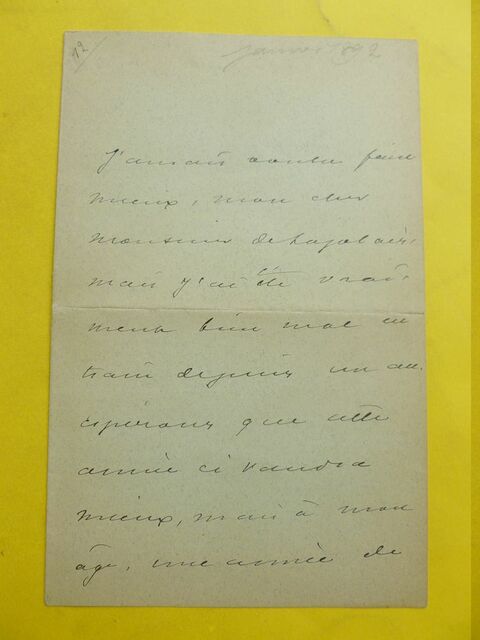 12
janvier 1892
J'aurais voulu faire
mieux, mon cher
monsieur
mais j'ai été vrai-
ment bien mal en
train depuis un an.
espérons que cette
année ci vaudra
mieux, mais à mon
âge, une année de